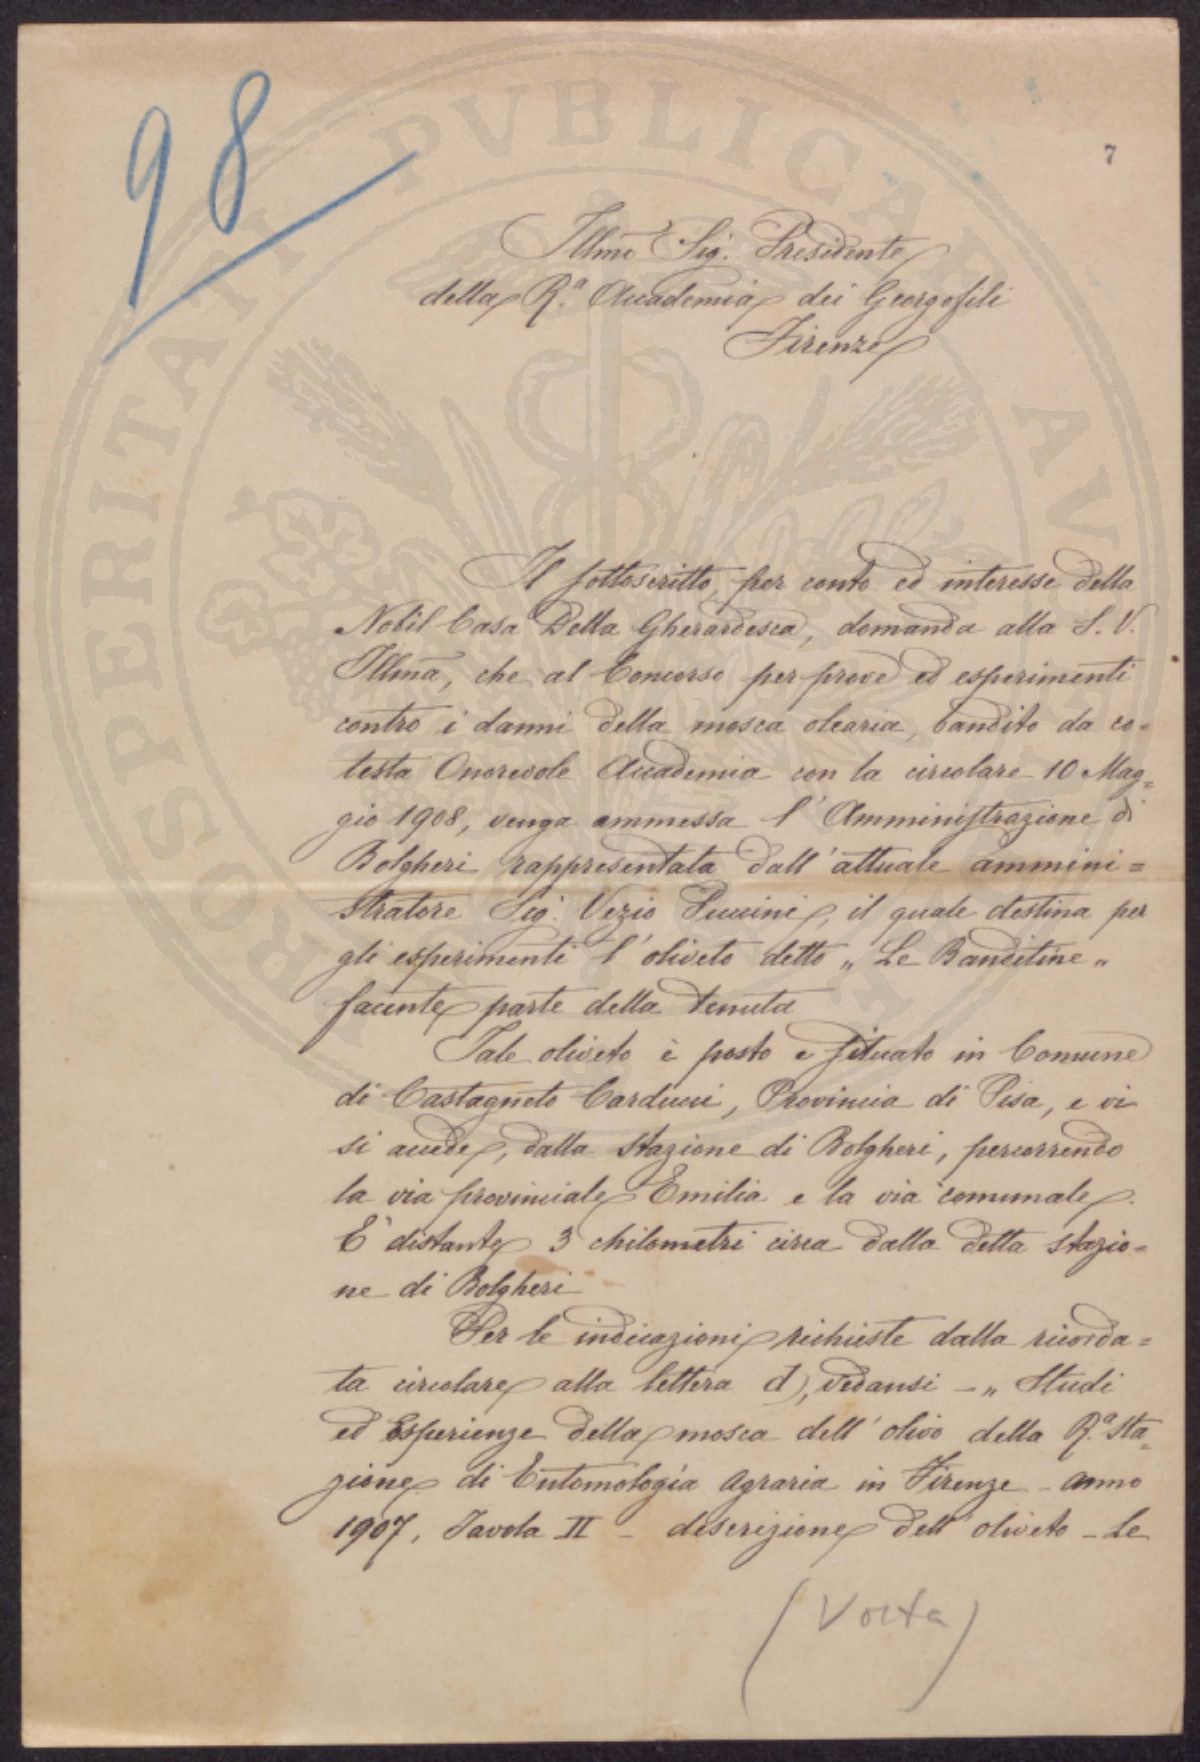 98
7
Illmo Sig. Presidente
della R.a Accademia dei Georgofili
Firenze
Il sottoscritto, per conto ed interesse della
Nobil Casa Della Gherardesca, domanda alla S. V.
Illma, che al Concorso per prove ed esperimenti
contro i danni della mosca olearia, bandito da co=
testa Onorevole Accademia con la circolare 10 Mag=
gio 1908, venga ammessa l'Amministrazione di
Bolgheri rappresentata dall'attuale ammini=
stratore Sig. Vezio Puccini, il quale destina per
gli esperimenti l'oliveto detto „ Le Banditine „
facente parte della tenuta
Tale oliveto è posto e situato in Comune
di Castagneto Carducci, Provincia di Pisa, e vi
si accede, dalla stazione di Bolgheri, percorrendo
la via provinciale Emilia e la via comunale.
E' distante 3 chilometri circa dalla detta stazio=
ne di Bolgheri
Per le indicazioni richieste dalla ricorda=
ta circolare alla lettera d), vedansi - „ Studi
ed Esperienze della mosca dell'olivo della R.a Sta=
zione di Entomologia Agraria in Firenze - anno
1907, Tavola II - descrizione dell'oliveto - Le
(Volta)
PROSPERITATI PVBLICAE AV